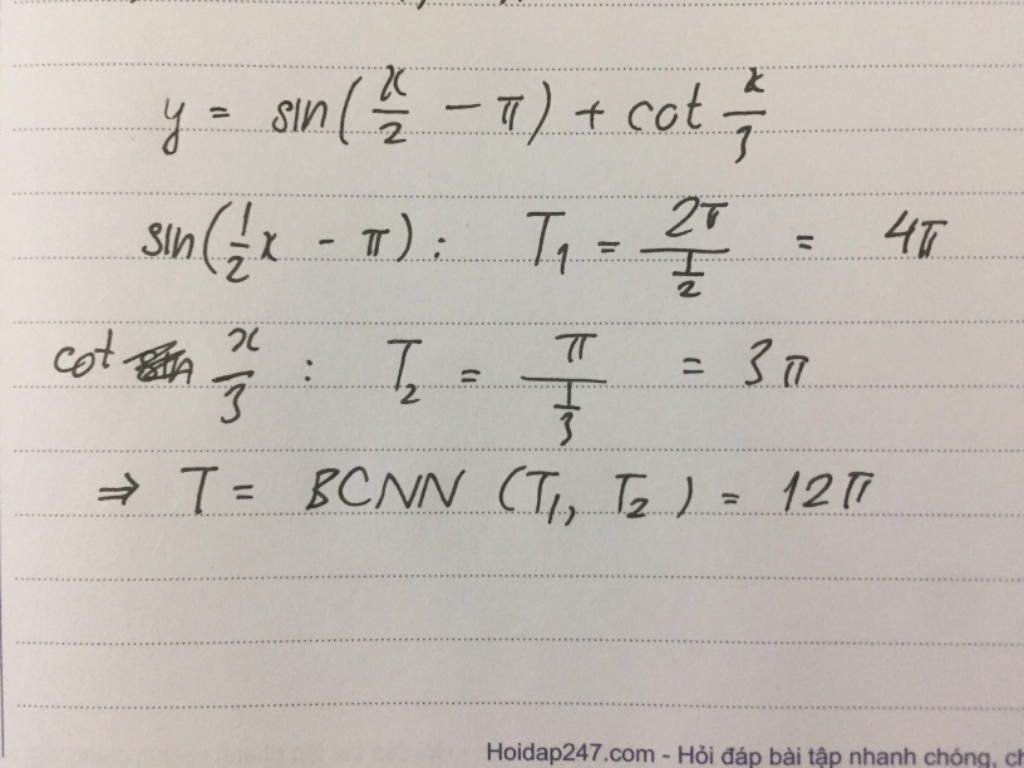 y = sin(x/2 - π) + cot x/3
sin(1/2 x - π) : T₁ = 2π/(1/2) = 4π
cot x/3 : T₂ = π/(1/3) = 3π
⇒ T = BCNN (T₁, T₂) = 12π
Hoidap247.com - Hỏi đáp bài tập nhanh chóng, ch